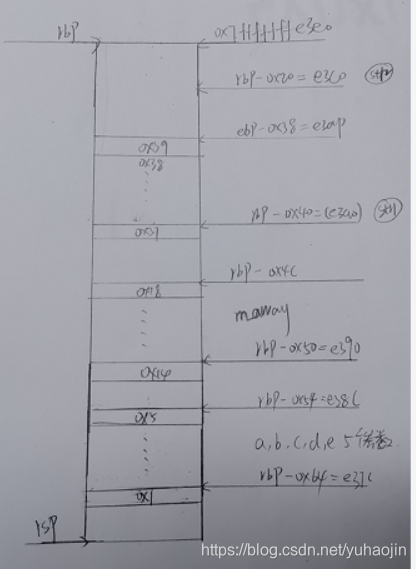 rbp
0x7fffffffe3e0
rbp-0x20=e3c0
str2
ebp-0x38=e3a8
0x39
0x38
rbp-0x40=(e3a0)
str1
0x31
rbp-0x4C
0x18
marray
rbp-0x50=e390
0x14
rbp-0x54=e38C
0x5
a,b,c,d,e 5
rbp-0x64=e37C
0x1
rsp
https://blog.csdn.net/yuhaojin